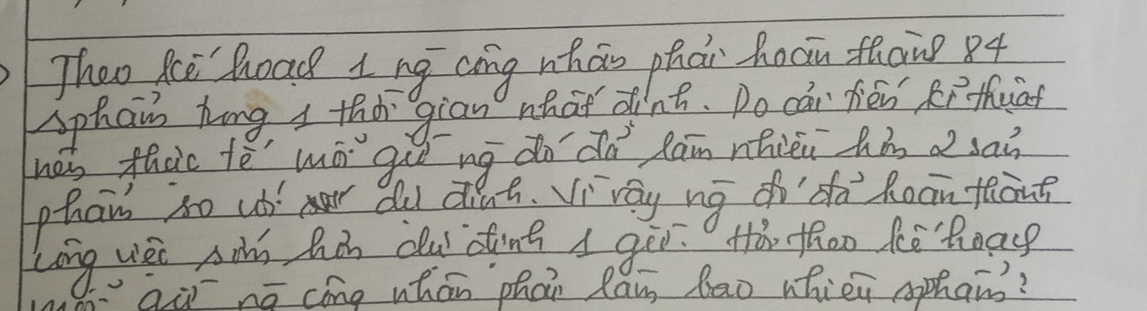 Theo kế hoạch 1 ng̃ công nhân phải hoàn thành 84
sphẩm trong 1 thời gian nhất định. Do cải tiến kĩ thuật
nên thực tế mỗi giờ ng̃ đó đã làm nhiều hơn 2 sản
phẩm so với dự định. Vì vậy ng̃ đó đã hoàn thành
công việc sớm hơn dự định 1 giờ. Hỏi theo kế hoạch
mỗi giờ ng̃ công nhân phải làm bao nhiêu sphẩm?